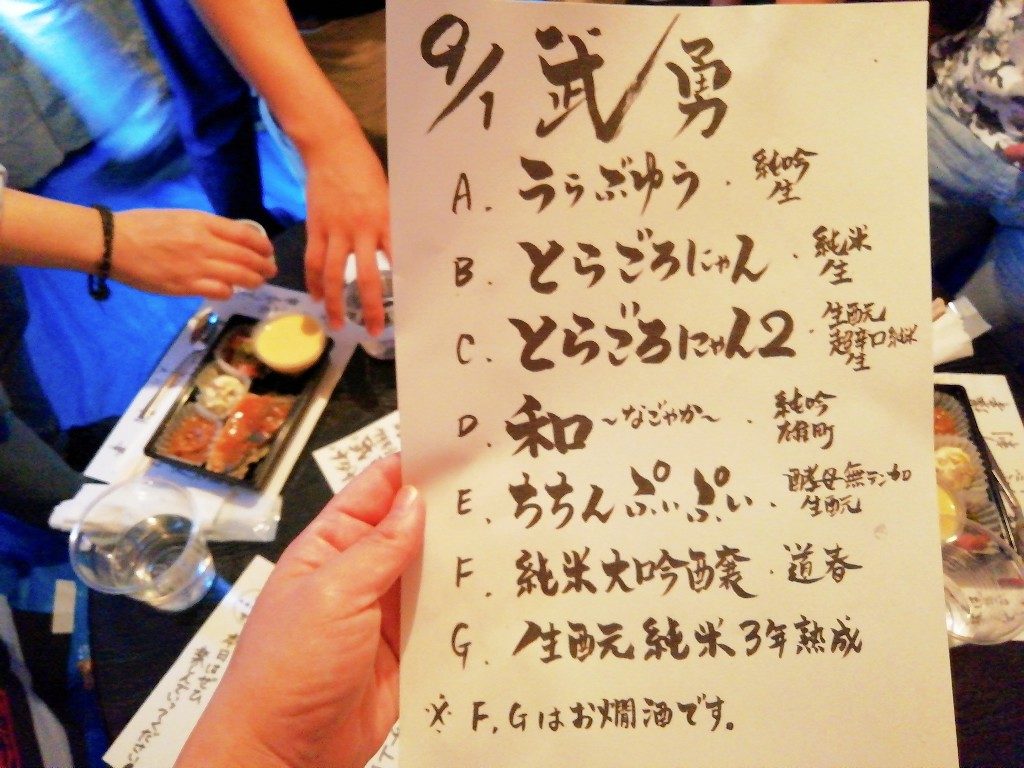 9/1 武勇
A. うらぶゆう ・ 純吟
生
B. とらごろにゃん ・ 純米
生
C. とらごろにゃん2 ・ 生酛
超辛口純米
生
D. 和 ~なごやか~ ・ 純吟
雄町
E. ちちんぷいぷい ・ 酵母無テンカ
生酛
F. 純米大吟醸 ・ 道春
G. 生酛 純米 3年熟成
※ F, Gはお燗酒です。